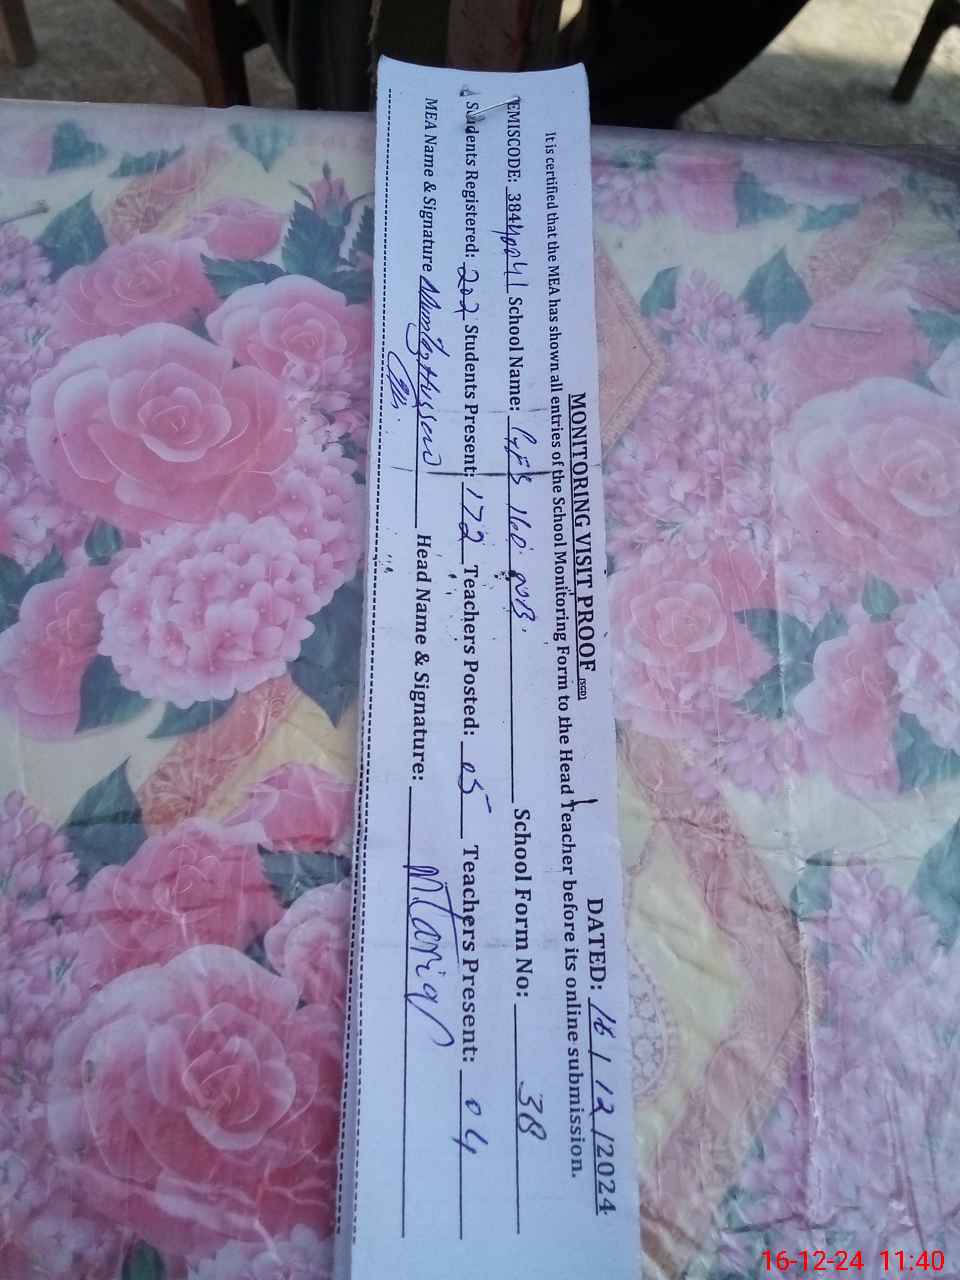 MONITORING VISIT PROOF (SGD) DATED: 16 / 12 / 2024
It is certified that the MEA has shown all entries of the School Monitoring Form to the Head Teacher before its online submission.
EMISCODE: 38440041 School Name: 160 NB. School Form No: 38
Students Registered: 202 Students Present: 172 Teachers Posted: 05 Teachers Present: 04
MEA Name & Signature Hussain Head Name & Signature: M Tariq
16-12-24 11:40